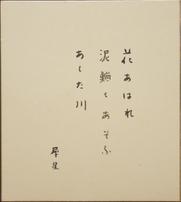 花あはれ
泥鰌とあそぶ
あした川
犀星